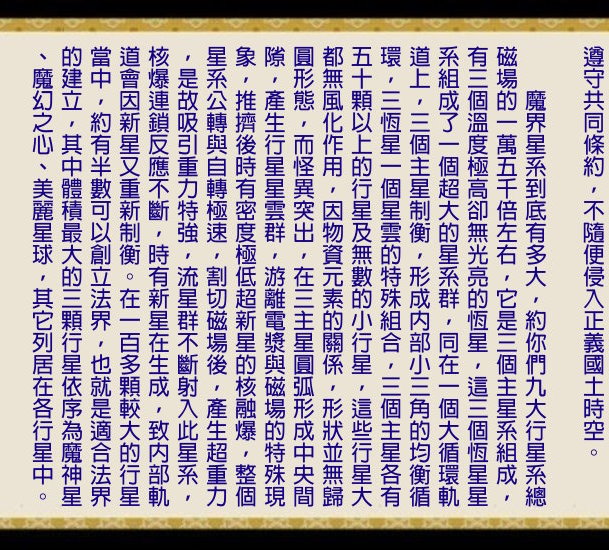 遵守共同條約，不隨便侵入正義國土時空。
魔界星系到底有多大，約你們九大行星系總
磁場的一萬五千倍左右，它是三個主星系組成，
有三個溫度極高卻無光亮的恆星，這三個恆星星
系組成了一個超大的星系群，同在一個大循環軌
道上，三個主星制衡，形成内部小三角的均衡循
環，三恆星一個星雲的特殊組合，三個主星各有
五十顆以上的行星及無數的小行星，這些行星大
都無風化作用，因物資元素的關係，形狀並無歸
圓形態，而怪異突出，在三主星圓弧形成中央間
隙，產生行星星雲群，游離電漿與磁場的特殊現
象，推擠後時有密度極低超新星的核融爆，整個
星系公轉與自轉極速，割切磁場後，產生超重力
，是故吸引重力特強，流星群不斷射入此星系，
核爆連鎖反應不斷，時有新星在生成，致内部軌
道會因新星又重新制衡。在一百多顆較大的行星
當中，約有半數可以創立法界，也就是適合法界
的建立，其中體積最大的三顆行星依序為魔神星
、魔幻之心、美麗星球，其它列居在各行星中。